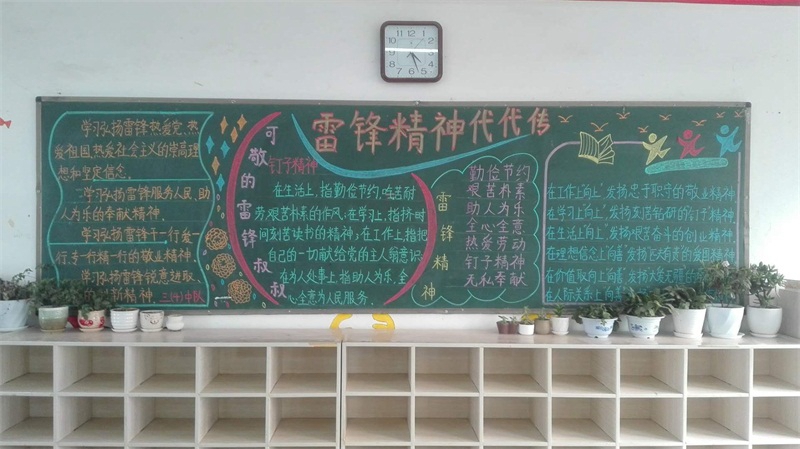 雷锋精神代代传
学习弘扬雷锋热爱党、热
爱祖国、热爱社会主义的崇高理
想和坚定信念。
学习弘扬雷锋服务人民、助
人为乐的奉献精神。
学习弘扬雷锋干一行爱一
行、专一行精一行的敬业精神。
学习弘扬雷锋锐意进取、
新精神。
三(4)中队
可敬的雷锋叔叔
钉子精神
在生活上,指勤俭节约,吃苦耐
劳艰苦朴素的作风,在学习上,指挤时
间刻苦读书的精神;在工作上,指把
自己的一切献给党的主人翁意识
在为人处事上,指助人为乐,全
心全意为人民服务。
雷锋精神
勤俭节约
艰苦朴素
助人为乐
全心全意
热爱劳动
钉子精神
无私奉献
在工作上向上"发扬忠于职守的敬业精神
在学习上向上"发扬刻苦钻研的钉子精神
在生活上向上"发扬艰苦奋斗的创业精神
在理想信念上向善"发扬伟大的爱国精神
在价值取向上向善"发扬大爱无疆的
在人际关系上向善"